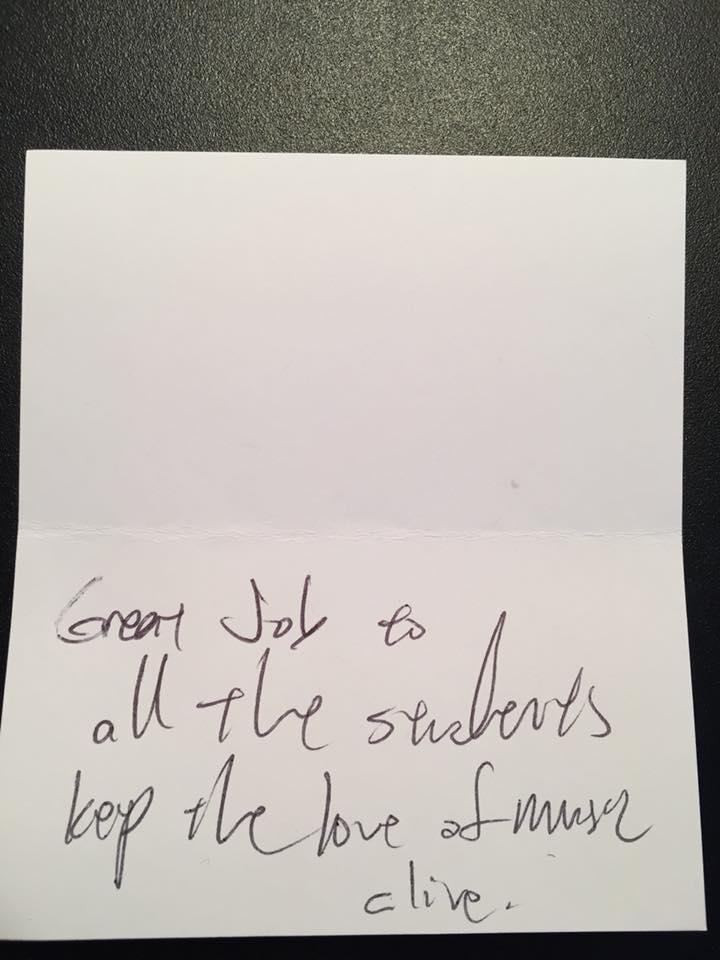 Great Job to
all the students
keep the love of music
alive.